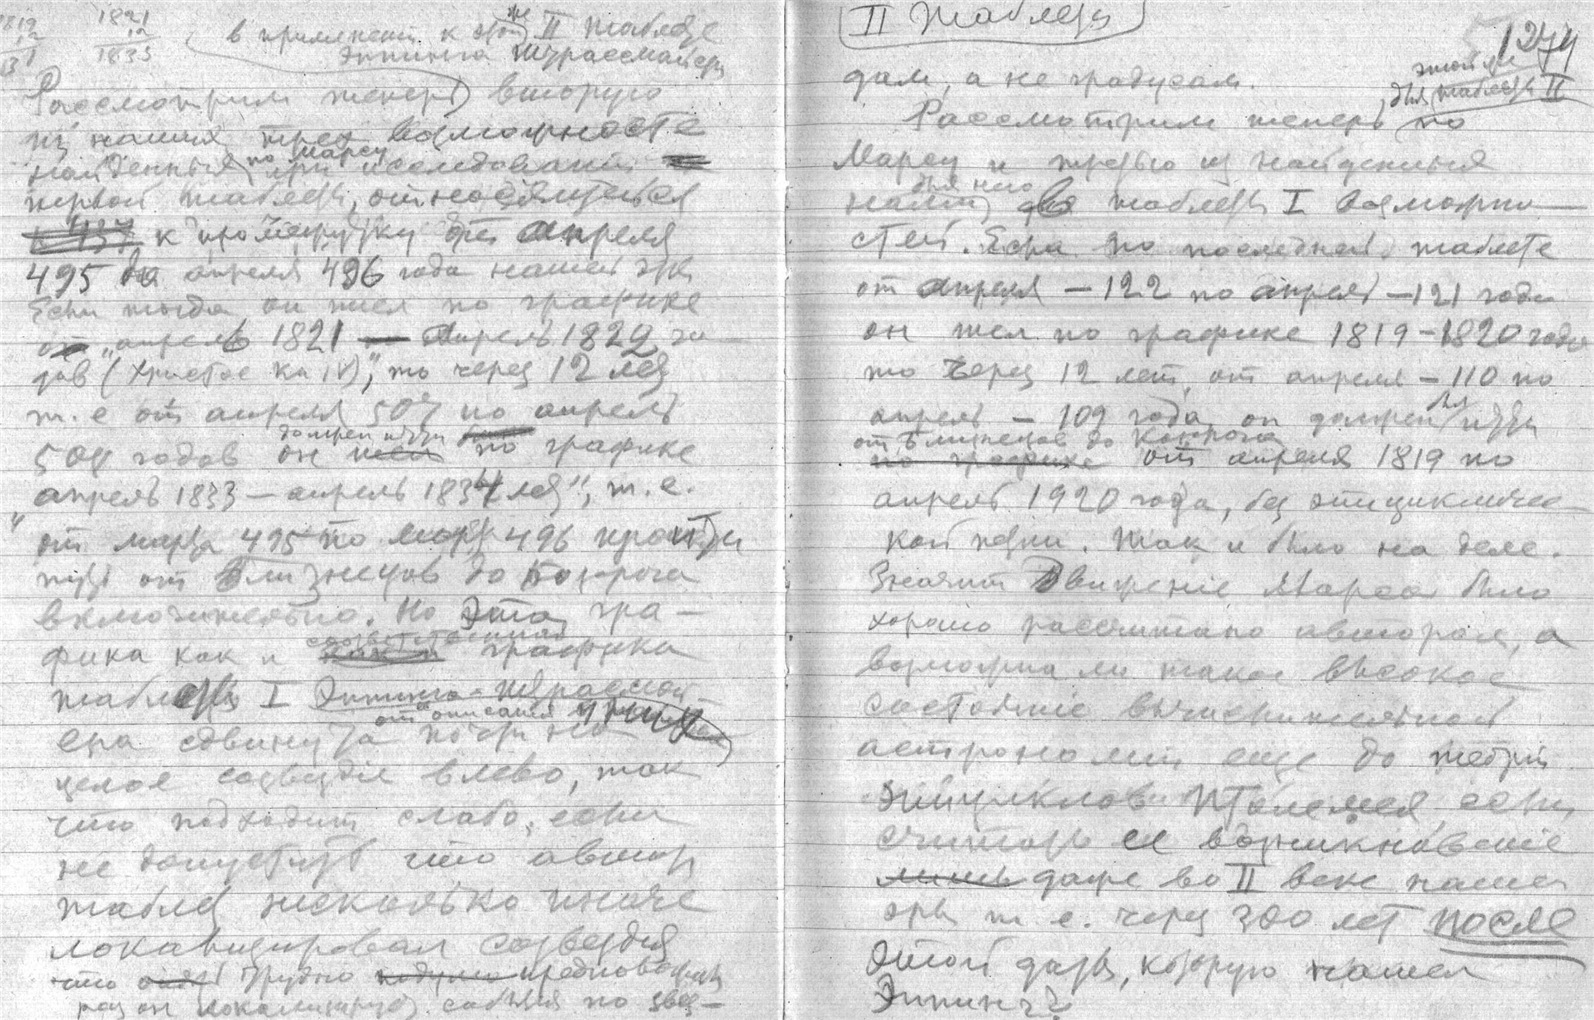 1819
12
1831
1821
12
1833
в применении к этой же II таблеце
Эппинга Штрассмайера
Рассмотрим теперь вторую
из наших трех возможносте
найденных по Марсу при иследовании
первой таблецы, относящуюся
к промежутку от апреля
495 до апреля 496 года нашей эры
Если тогда он шел по графике
"апрель 1821 — апрель 1822 го-
дов (Христос кн IV)", то через 12 лет
т. е от апреля 507 по апрель
508 годов он должен идти по графике
апрель 1833 – апрель 1834 лет", т. е.
"от марта 495 по март 496 пройти
путь от Близнецов до Козорога
включительно. Но эта гра-
фика как и соответственная графика
таблецы I Эппинга-Штрасмай-
ера сдвинута почти на
от описания
целое созвездие влево, так
что подходит слабо, если
не допустить что автор
таблец несколько иначе
локализировал созвездия
что трудно предположить
раз он локализирует события по звез-
II таблеца
1274
дам, а не градусам.
Рассмотрим теперь для этой же таблецы II
Марсу и третью из найденных
нами для него таблецы I возможно-
стей. Если по последней таблеце
от апреля – 122 по апрель – 121 года
он шел по графике 1819 – 1820 года
то через 12 лет, от апреля – 110 по
апрель – 109 года он должен был идти
от Близнецов до Козорога
по графике от апреля 1819 по
апрель 1920 года, без эпицикличес-
кой петли. Так и было на деле.
Значит движение Марса было
хорошо рассчитано автором, а
возможна ли такое высокое
состояние вычислительной
астрономии еще до теории
эпициклов Птолемея, если
считать ее возникновение
лишь даже во II веке нашей
эры т. е. через 300 лет после
этой даты, которую нашел
Эппинг?